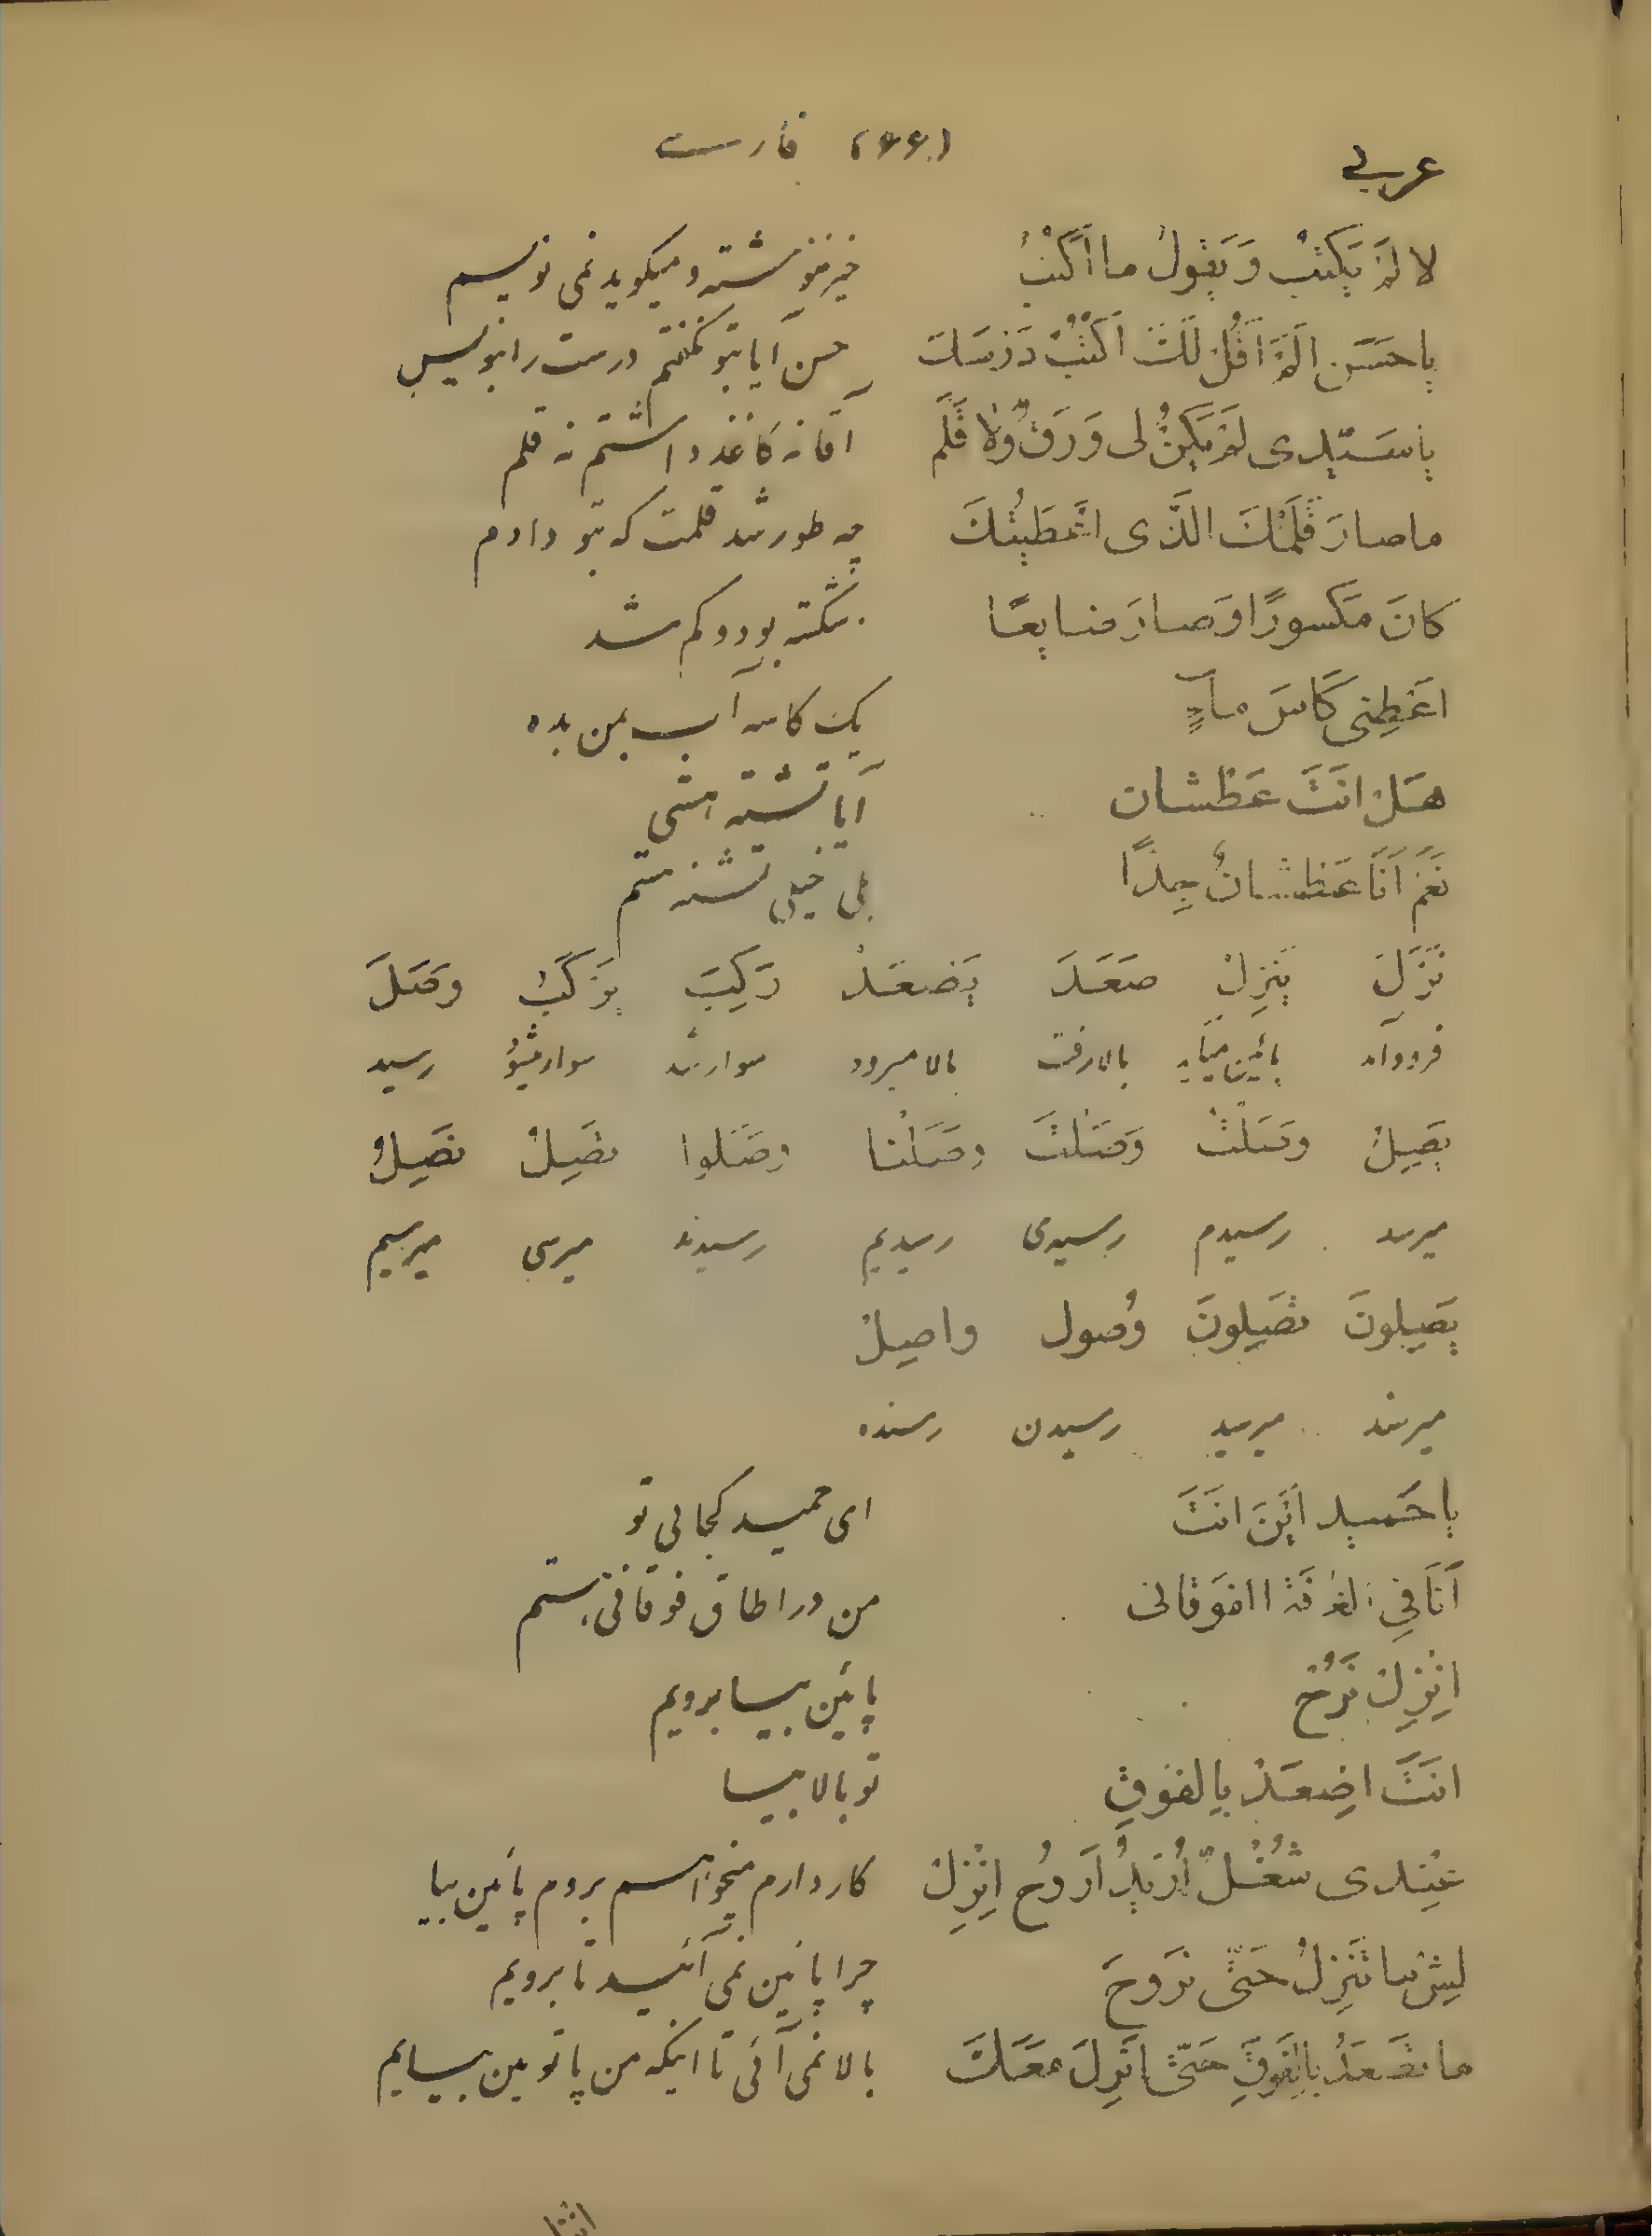 عربی (۶۶) فارسی
لا لَمْ یَکْتُبْ وَ یَقُولُ ما اَکْتُبُ خیر ننوشته و میگوید نمی نویسم
یا حَسَن اَلَمْ اَقُلْ لَکَ اُکْتُبْ دَرْسَکَ حسن آیا بتو نگفتم درست را بنویس
یا سَیّدی لَمْ یَکُنْ لی وَرَقٌ وَلا قَلَم آقا نه کاغذ داشتم نه قلم
ما صارَ قَلَمُکَ الَّذی اَعْطَیْتُکَ چه طور شد قلمت که بتو دادم
کانَ مَکسورًا وَ صارَ ضایِعًا شکسته بود و گم شد
اَعْطِنی کَاسَ ماءٍ یک کاسه آب بمن بده
هَلْ اَنْتَ عَطْشان آیا تشنه هستی
نَعَمْ اَنَا عَطْشانُ جِدًّا بلی خیلی تشنه هستم
نَزَلَ یَنْزِلُ صَعَدَ یَصْعَدُ رَکِبَ یَرْکَبُ وَصَلَ
فرود آمد پائین میآید بالا رفت بالا میرود سوار شد سوار میشود رسید
یَصِلُ وَصَلْتُ وَصَلْتَ وَصَلْنا وَصَلوا تَصِلُ نَصِلُ
میرسد رسیدم رسیدی رسیدیم رسیدند میرسی میرسیم
یَصِلونَ تَصِلونَ وُصول واصِلْ
میرسند میرسید رسیدن رسنده
یا حَمید اَیْنَ اَنْتَ ای حمید کجائی تو
اَنَا فِی الغُرْفَة الفَوْقانی من در اطاق فوقانی هستم
اِنْزِلْ نَرُحْ پائین بیا برویم
اَنْتَ اِصْعَدْ بِالفَوْقِ تو بالا بیا
عِنْدی شُغْلٌ اُریدُ اَرُوحُ اِنْزِلْ کار دارم میخواهم بروم پائین بیا
لِیشْ ما تَنْزِلُ حَتّی نَرُوحَ چرا پائین نمی آئید تا برویم
ما تَصْعَدُ بِالفَوْقِ حَتّی اَنْزِلَ مَعَکَ بالا نمی آئی تا اینکه من با تو پائین بیایم